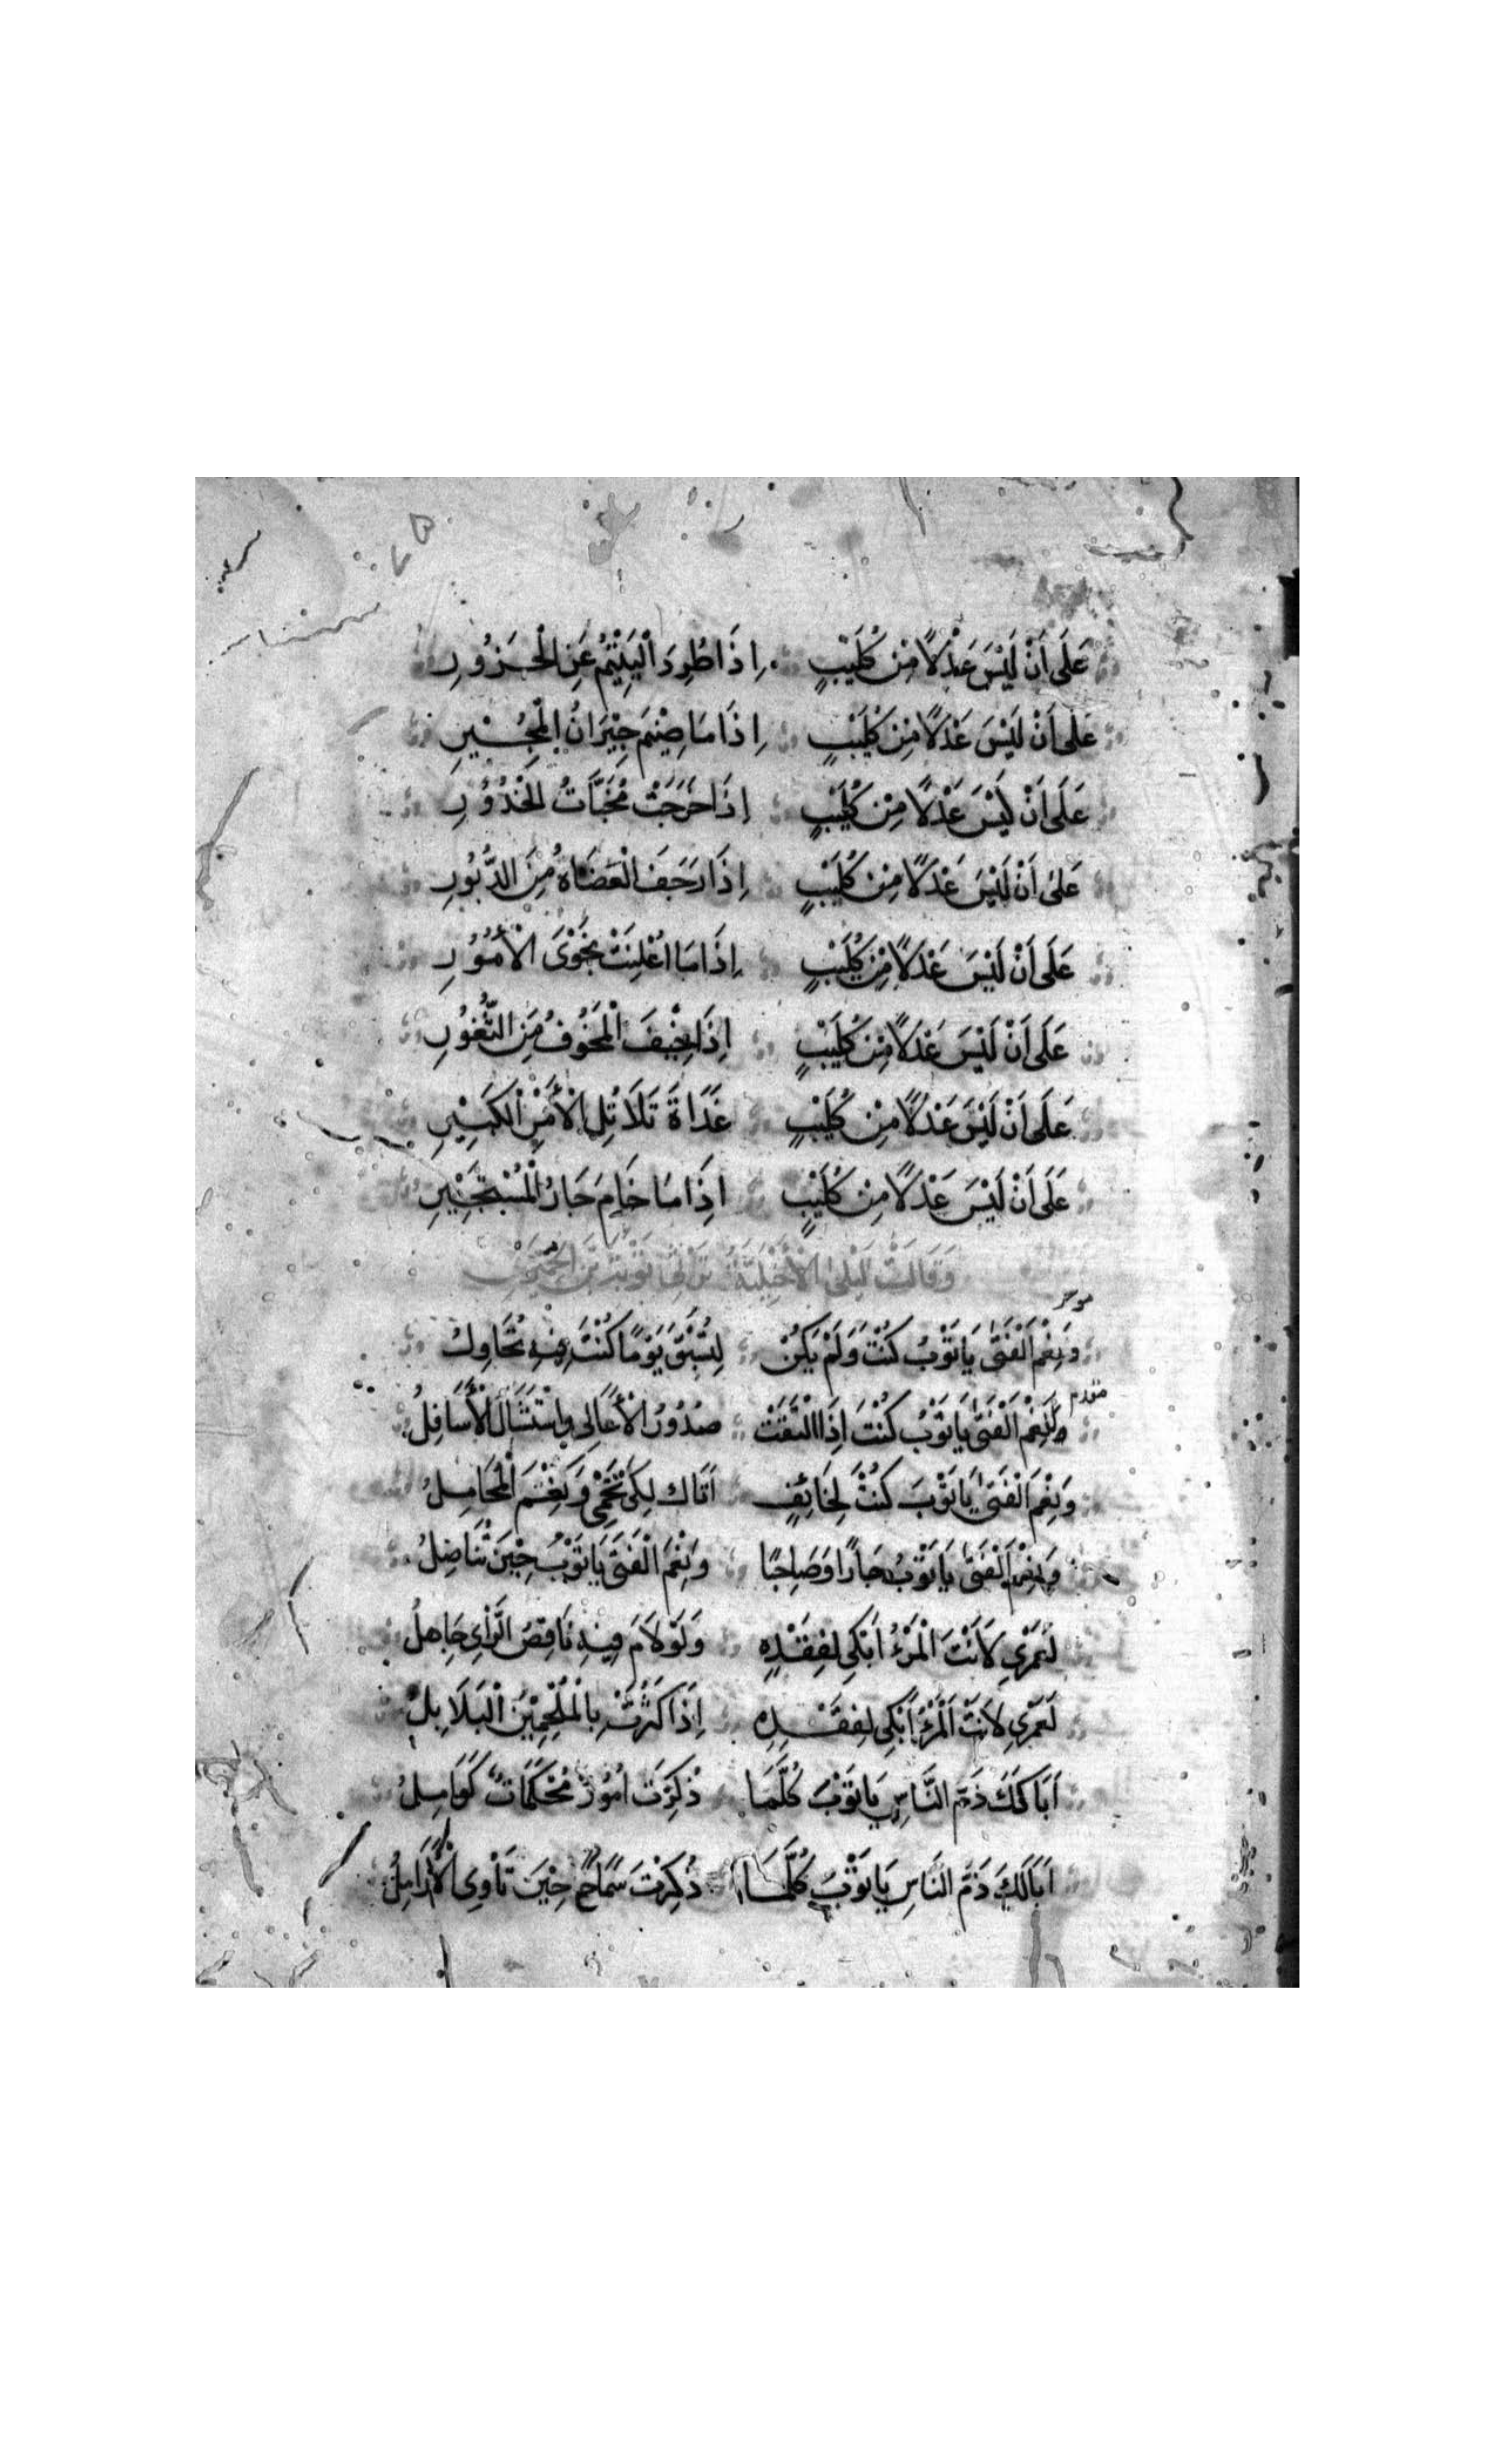 عَلَى اَنْ لَيْسَ عَدْلًا مِنْ كُلَيْبٍ اِذَا طُرِدَ الْيَتِيْمُ عَنِ الْجَزُورِ
عَلَى اَنْ لَيْسَ عَدْلًا مِنْ كُلَيْبٍ اِذَا مَا ضِيْمَ جِيْرَانُ الْمُجِيْرِ
عَلَى اَنْ لَيْسَ عَدْلًا مِنْ كُلَيْبٍ اِذَا خَرَجَتْ مُخَبَّاَتُ الْخُدُوْرِ
عَلَى اَنْ لَيْسَ عَدْلًا مِنْ كُلَيْبٍ اِذَا رَجَفَ الْعَضَاهُ مِنَ الدَّبُوْرِ
عَلَى اَنْ لَيْسَ عَدْلًا مِنْ كُلَيْبٍ اِذَا مَا اُعْلِنَتْ نَجْوَى الْاُمُوْرِ
عَلَى اَنْ لَيْسَ عَدْلًا مِنْ كُلَيْبٍ اِذَا خِيْفَ الْمَخُوْفُ مِنَ الثُّغُوْرِ
عَلَى اَنْ لَيْسَ عَدْلًا مِنْ كُلَيْبٍ غَدَاةَ تَلَاتُلِ الْاَمْرِ الْكَبِيْرِ
عَلَى اَنْ لَيْسَ عَدْلًا مِنْ كُلَيْبٍ اِذَا مَا خَامَ جَارُ الْمُسْتَجِيْرِ
وَقَالَتْ لَيْلَى الْاَخْيَلِيَّةُ تَرْثِي تَوْبَةَ بْنَ الْحُمَيِّرِ
موخر
وَنِعْمَ الْفَتَى يَا تَوْبُ كُنْتَ وَلَمْ يَكُنْ لِتُسْبَقَ يَوْمًا كُنْتَ فِيْهِ تُحَاوِلُ
مقدم
وَنِعْمَ الْفَتَى يَا تَوْبُ كُنْتَ اِذَا الْتَقَتْ صُدُوْرُ الْاَعَالِي وَاسْتَشَالَ الْاَسَافِلُ
وَنِعْمَ الْفَتَى يَا تَوْبَ كُنْتَ لِخَائِفٍ اَتَاكَ لِكَيْ تَحْمِي وَنِعْمَ الْمُجَامِلُ
وَنِعْمَ الْفَتَى يَا تَوْبُ جَارًا وَصَاحِبًا وَنِعْمَ الْفَتَى يَا تَوْبُ حِيْنَ تُنَاضِلُ
لَعَمْرِي لَاَنْتَ الْمَرْءُ اَبْكِي لِفَقْدِهِ وَلَوْ لَامَ فِيْهِ نَاقِصُ الرَّاْيِ جَاهِلُ
لَعَمْرِي لَاَنْتَ الْمَرْءُ اَبْكِي لِفَقْدِهِ اِذَا كَثُرَتْ بِالْمُلْحِمِيْنَ الْبَلَابِلُ
اَبَا لَكَ ذَمَّ النَّاسِ يَا تَوْبَ كُلَّمَا ذُكِرَتْ اُمُوْرٌ مُحْكَمَاتٌ كَوَامِلُ
اَبَا لَكَ ذَمَّ النَّاسِ يَا تَوْبَ كُلَّمَا ذُكِرْتَ سَمَاحٌ حِيْنَ تَاْوِي الْاَرَامِلُ